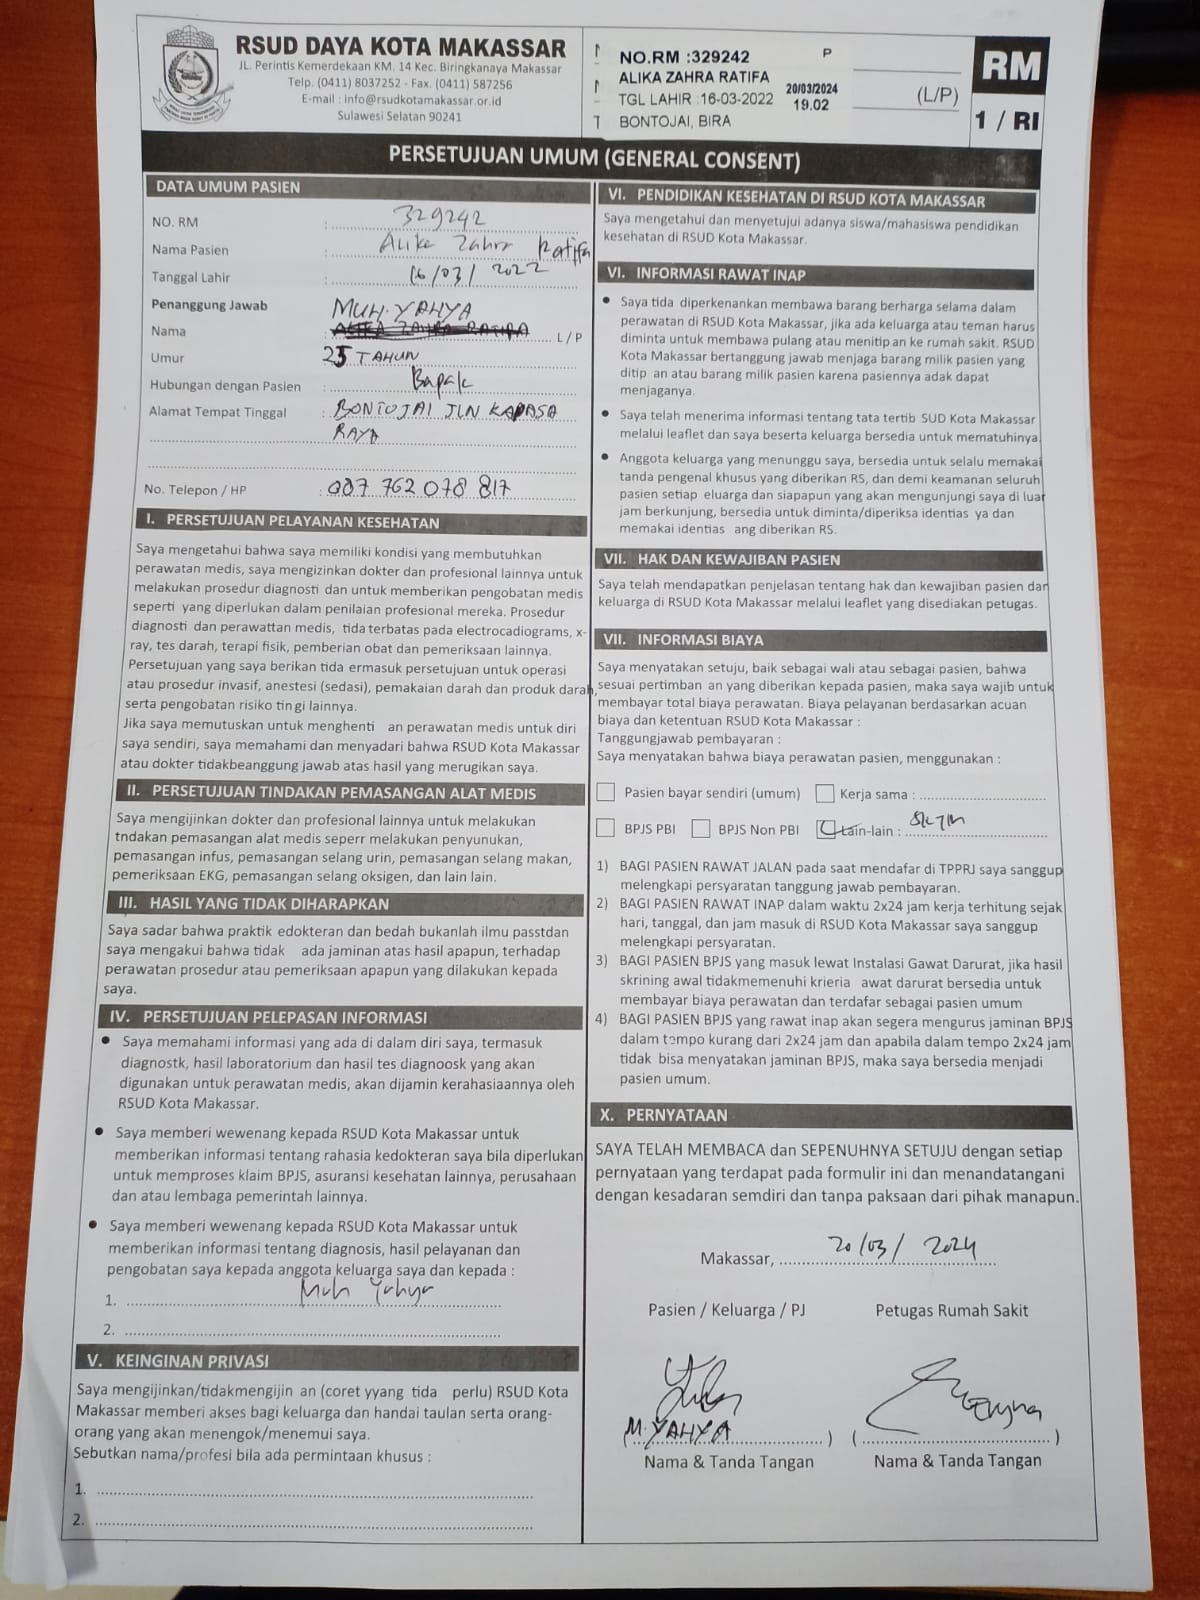 RSUD DAYA KOTA MAKASSAR
JL. Perintis Kemerdekaan KM. 14 Kec. Biringkanaya Makassar
Telp. (0411) 8037252 - Fax. (0411) 587256
E-mail : info@rsudkotamakassar.or.id
Sulawesi Selatan 90241
NO.RM :329242 P
ALIKA ZAHRA RATIFA
20/03/2024
TGL LAHIR :16-03-2022
19.02
BONTOJAI, BIRA
(L/P)
RM
1 / RI
PERSETUJUAN UMUM (GENERAL CONSENT)
DATA UMUM PASIEN
NO. RM : 329242
Nama Pasien : Alika Zahra Ratifa
Tanggal Lahir : 16/03/2022
Penanggung Jawab
MUH. YAHYA
Nama : ALIKA ZAHRA RATIFA L / P
Umur 25 TAHUN
Hubungan dengan Pasien : Bapak
Alamat Tempat Tinggal : BONTOJAI JLN KAPASA
RAYA
No. Telepon / HP : 087 762 078 817
I. PERSETUJUAN PELAYANAN KESEHATAN
Saya mengetahui bahwa saya memiliki kondisi yang membutuhkan
perawatan medis, saya mengizinkan dokter dan profesional lainnya untuk
melakukan prosedur diagnosti dan untuk memberikan pengobatan medis
seperti yang diperlukan dalam penilaian profesional mereka. Prosedur
diagnosti dan perawattan medis, tida terbatas pada electrocadiograms, x-
ray, tes darah, terapi fisik, pemberian obat dan pemeriksaan lainnya.
Persetujuan yang saya berikan tida ermasuk persetujuan untuk operasi
atau prosedur invasif, anestesi (sedasi), pemakaian darah dan produk darah,
serta pengobatan risiko tin gi lainnya.
Jika saya memutuskan untuk menghenti an perawatan medis untuk diri
saya sendiri, saya memahami dan menyadari bahwa RSUD Kota Makassar
atau dokter tidakbeanggung jawab atas hasil yang merugikan saya.
II. PERSETUJUAN TINDAKAN PEMASANGAN ALAT MEDIS
Saya mengijinkan dokter dan profesional lainnya untuk melakukan
tndakan pemasangan alat medis seperr melakukan penyunukan,
pemasangan infus, pemasangan selang urin, pemasangan selang makan,
pemeriksaan EKG, pemasangan selang oksigen, dan lain lain.
III. HASIL YANG TIDAK DIHARAPKAN
Saya sadar bahwa praktik edokteran dan bedah bukanlah ilmu passtdan
saya mengakui bahwa tidak ada jaminan atas hasil apapun, terhadap
perawatan prosedur atau pemeriksaan apapun yang dilakukan kepada
saya.
IV. PERSETUJUAN PELEPASAN INFORMASI
• Saya memahami informasi yang ada di dalam diri saya, termasuk
diagnostk, hasil laboratorium dan hasil tes diagnoosk yang akan
digunakan untuk perawatan medis, akan dijamin kerahasiaannya oleh
RSUD Kota Makassar.
• Saya memberi wewenang kepada RSUD Kota Makassar untuk
memberikan informasi tentang rahasia kedokteran saya bila diperlukan
untuk memproses klaim BPJS, asuransi kesehatan lainnya, perusahaan
dan atau lembaga pemerintah lainnya.
• Saya memberi wewenang kepada RSUD Kota Makassar untuk
memberikan informasi tentang diagnosis, hasil pelayanan dan
pengobatan saya kepada anggota keluarga saya dan kepada :
1. Muh Yahya
2.
V. KEINGINAN PRIVASI
Saya mengijinkan/tidakmengijin an (coret yyang tida perlu) RSUD Kota
Makassar memberi akses bagi keluarga dan handai taulan serta orang-
orang yang akan menengok/menemui saya.
Sebutkan nama/profesi bila ada permintaan khusus :
1.
2.
VI. PENDIDIKAN KESEHATAN DI RSUD KOTA MAKASSAR
Saya mengetahui dan menyetujui adanya siswa/mahasiswa pendidikan
kesehatan di RSUD Kota Makassar.
VI. INFORMASI RAWAT INAP
• Saya tida diperkenankan membawa barang berharga selama dalam
perawatan di RSUD Kota Makassar, jika ada keluarga atau teman harus
diminta untuk membawa pulang atau menitip an ke rumah sakit. RSUD
Kota Makassar bertanggung jawab menjaga barang milik pasien yang
ditip an atau barang milik pasien karena pasiennya adak dapat
menjaganya.
• Saya telah menerima informasi tentang tata tertib SUD Kota Makassar
melalui leaflet dan saya beserta keluarga bersedia untuk mematuhinya.
• Anggota keluarga yang menunggu saya, bersedia untuk selalu memakai
tanda pengenal khusus yang diberikan RS, dan demi keamanan seluruh
pasien setiap eluarga dan siapapun yang akan mengunjungi saya di luar
jam berkunjung, bersedia untuk diminta/diperiksa identias ya dan
memakai identias ang diberikan RS.
VII. HAK DAN KEWAJIBAN PASIEN
Saya telah mendapatkan penjelasan tentang hak dan kewajiban pasien dan
keluarga di RSUD Kota Makassar melalui leaflet yang disediakan petugas.
VII. INFORMASI BIAYA
Saya menyatakan setuju, baik sebagai wali atau sebagai pasien, bahwa
sesuai pertimban an yang diberikan kepada pasien, maka saya wajib untuk
membayar total biaya perawatan. Biaya pelayanan berdasarkan acuan
biaya dan ketentuan RSUD Kota Makassar :
Tanggungjawab pembayaran :
Saya menyatakan bahwa biaya perawatan pasien, menggunakan :
Pasien bayar sendiri (umum) Kerja sama :
BPJS PBI BPJS Non PBI Lain-lain :
1) BAGI PASIEN RAWAT JALAN pada saat mendafar di TPPRJ saya sanggup
melengkapi persyaratan tanggung jawab pembayaran.
2) BAGI PASIEN RAWAT INAP dalam waktu 2x24 jam kerja terhitung sejak
hari, tanggal, dan jam masuk di RSUD Kota Makassar saya sanggup
melengkapi persyaratan.
3) BAGI PASIEN BPJS yang masuk lewat Instalasi Gawat Darurat, jika hasil
skrining awal tidakmemenuhi krieria awat darurat bersedia untuk
membayar biaya perawatan dan terdafar sebagai pasien umum
4) BAGI PASIEN BPJS yang rawat inap akan segera mengurus jaminan BPJS
dalam tempo kurang dari 2x24 jam dan apabila dalam tempo 2x24 jam
tidak bisa menyatakan jaminan BPJS, maka saya bersedia menjadi
pasien umum.
X. PERNYATAAN
SAYA TELAH MEMBACA dan SEPENUHNYA SETUJU dengan setiap
pernyataan yang terdapat pada formulir ini dan menandatangani
dengan kesadaran semdiri dan tanpa paksaan dari pihak manapun.
Makassar, 20/03/2024
Pasien / Keluarga / PJ Petugas Rumah Sakit
(M. YAHYA) ( )
Nama & Tanda Tangan Nama & Tanda Tangan